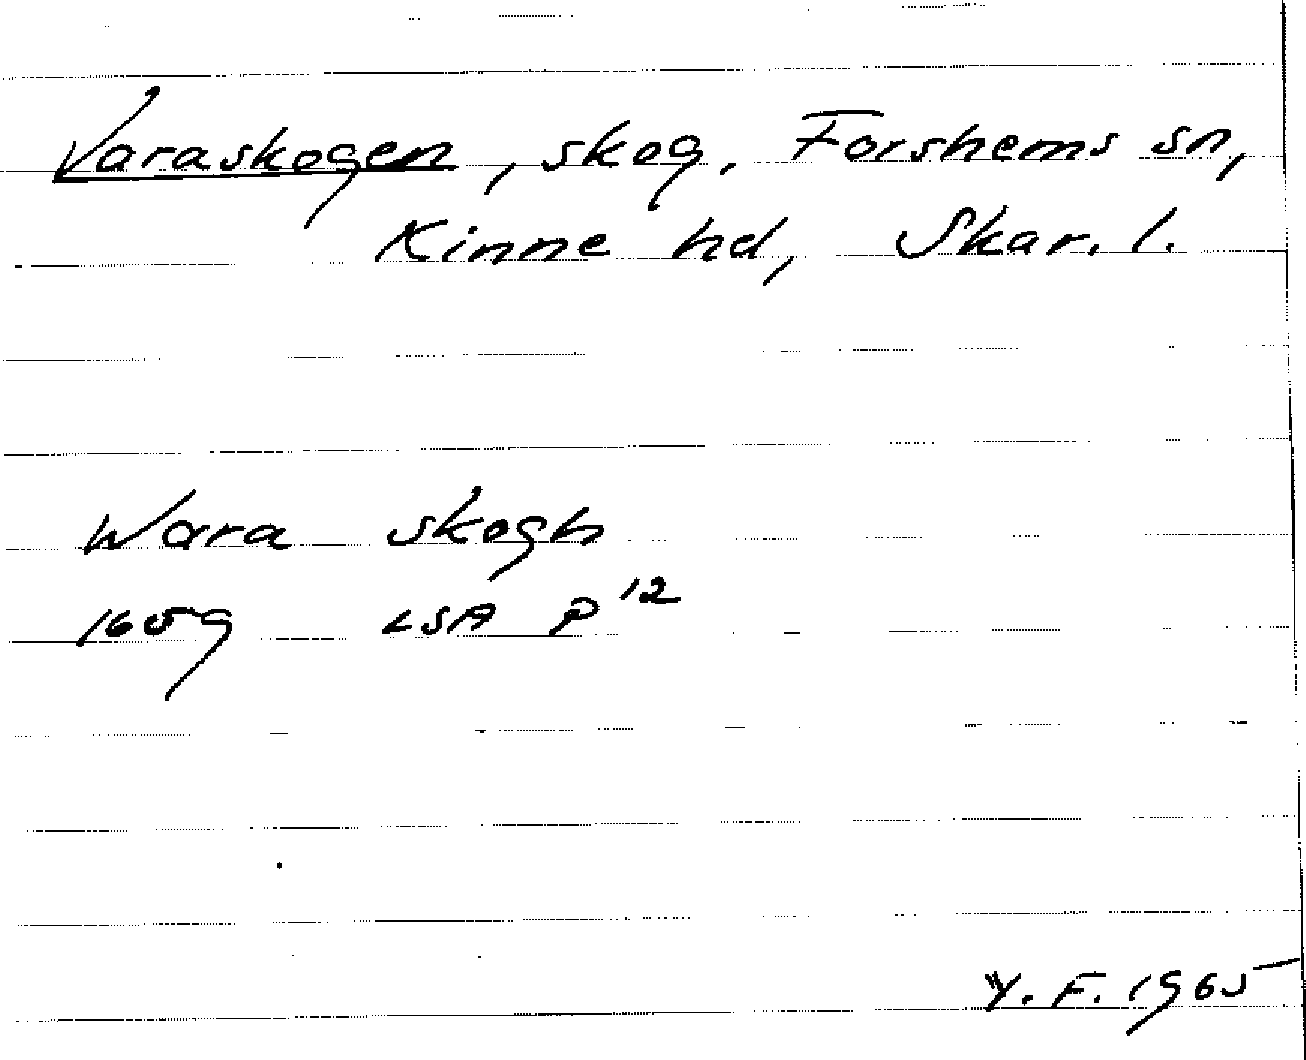 Varaskogen, skog, Forshems sn,
Kinne hd, Skar. l.
Wara skogh
1659 LSA P 12
Y. F. 1965